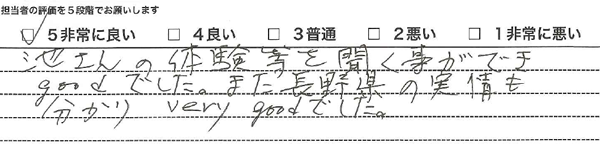 担当者の評価を５段階でお願いします
☑ ５非常に良い □ ４良い □ ３普通 □ ２悪い □ １非常に悪い
池さんの体験等を聞く事ができ
goodでした。また長野県の実情も
分かり very goodでした。